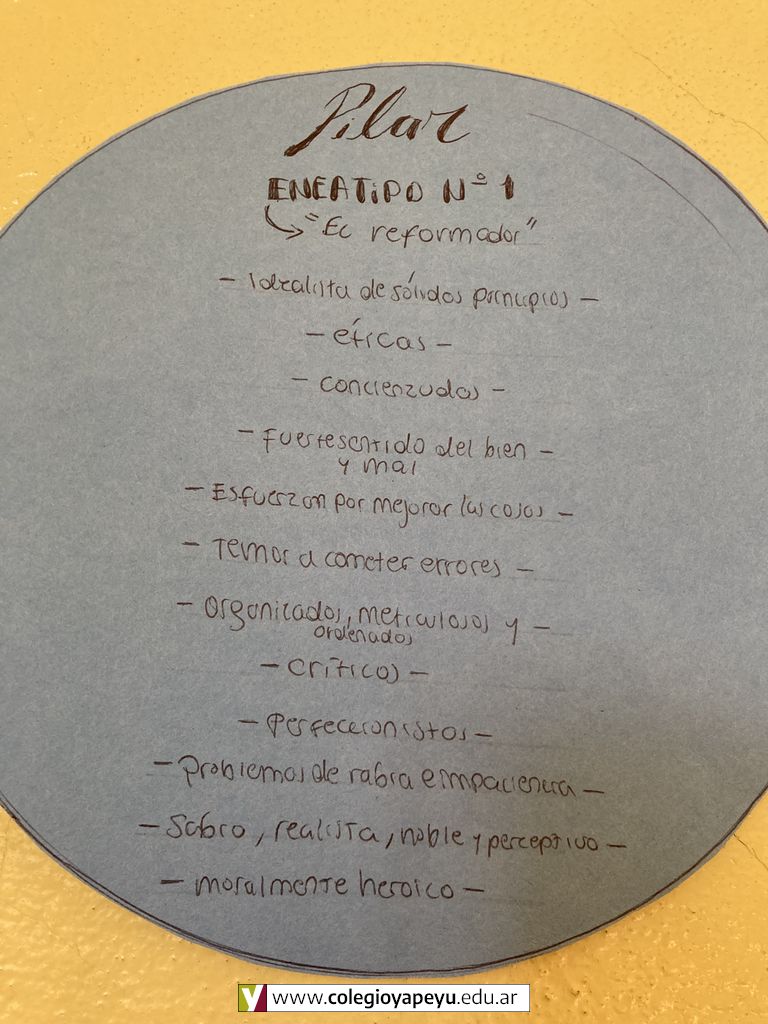 Pilar
ENEATIPO N° 1
"El reformador"
- Idealista de sólidos principios -
- éticas -
- concienzudas -
- Fuerte sentido del bien -
y mal
- Esfuerzan por mejorar las cosas -
- Temor a cometer errores -
- Organizados, meticulosos y -
ordenados
- Críticos -
- Perfeccionistas -
- problemas de rabia e impaciencia -
- Sabio, realista, noble y perceptivo -
- moralmente heroico -
y www.colegioyapeyu.edu.ar